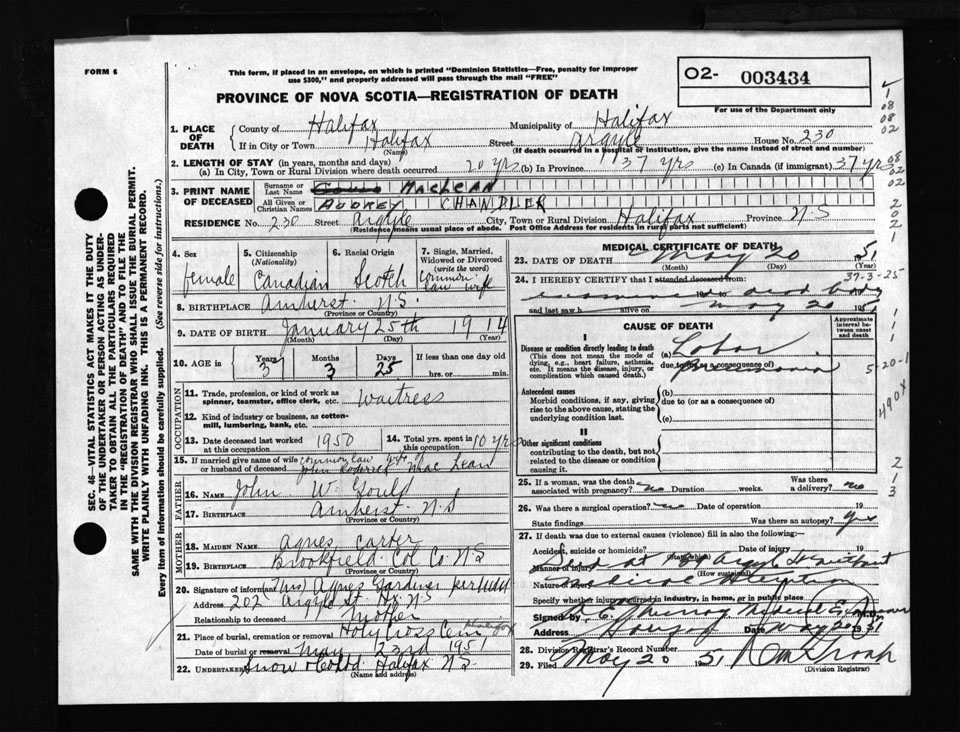 FORM 6
This form, if placed in an envelope, on which is printed "Dominion Statistics—Free, penalty for improper
use $300," and properly addressed will pass through the mail "FREE"
PROVINCE OF NOVA SCOTIA—REGISTRATION OF DEATH
O2- 003434
For use of the Department only
1. PLACE OF DEATH
County of Halifax Municipality of Halifax
If in City or Town Halifax Street Argyle House No. 230
(Name) (If death occurred in a hospital or institution, give the name instead of street and number)
2. LENGTH OF STAY (in years, months and days)
(a) In City, Town or Rural Division where death occurred 20 yrs (b) In Province 37 yrs (c) In Canada (if immigrant) 37 yrs
3. PRINT NAME OF DECEASED
Surname or Last Name MACLEAN
All Given or Christian Names AUDREY CHANDLER
RESIDENCE No. 230 Street Argyle City, Town or Rural Division Halifax Province N.S
(Residence means usual place of abode. Post Office Address for residents in rural parts not sufficient)
4. Sex
female
5. Citizenship
(Nationality)
Canadian
6. Racial Origin
Scotch
7. Single, Married,
Widowed or Divorced
(write the word)
common
law wife
8. BIRTHPLACE Amherst N.S.
(Province or Country)
9. DATE OF BIRTH January 25th 1914
(Month) (Day) (Year)
10. AGE in
Years 3
Months 3
Days 25
If less than one day old
hrs. or min.
OCCUPATION
11. Trade, profession, or kind of work as
spinner, teamster, office clerk, etc. Waitress
12. Kind of industry or business, as cotton-
mill, lumbering, bank, etc.
13. Date deceased last worked
at this occupation 1950
14. Total yrs. spent in
this occupation 10 yrs
15. If married give name of wife
or husband of deceased common law wife of
John Roderick MacLean
FATHER
16. NAME John W Gould
17. BIRTHPLACE Amherst N.S
(Province or Country)
MOTHER
18. MAIDEN NAME Agnes Carter
19. BIRTHPLACE Brookfield Col Co N.S
(Province or Country)
20. Signature of informant (Mrs) Agnes Gardner
Address 202 Argyle St. Hx N.S
Relationship to deceased Mother
21. Place of burial, cremation or removal Holy Cross Cem Halifax
Date of burial or removal May 23rd 1951
22. Undertaker Snow & Co Ltd Halifax N.S
(Name and address)
MEDICAL CERTIFICATE OF DEATH
23. DATE OF DEATH May 20 1951
(Month) (Day) (Year)
37-3-25
24. I HEREBY CERTIFY that I attended deceased from:
examined dead body
and last saw h alive on May 20 1951
CAUSE OF DEATH
Approximate interval between onset and death
I
Disease or condition directly leading to death
(This does not mean the mode of
dying, e.g., heart failure, asthenia,
etc. It means the disease, injury, or
complication which caused death.)
(a) Lobar
due to (or as a consequence of)
pneumonia
Antecedent causes
Morbid conditions, if any, giving
rise to the above cause, stating the
underlying condition last.
(b)
due to (or as a consequence of)
(c)
II
Other significant conditions
contributing to the death, but not
related to the disease or condition
causing it.
25. If a woman, was the death
associated with pregnancy? no Duration weeks. Was there a delivery? no
26. Was there a surgical operation? no Date of operation 19
State findings Was there an autopsy? yes
27. If death was due to external causes (violence) fill in also the following:
Accident, suicide or homicide? Date of injury 19
(State which)
Manner of injury at Argyle St without
(How sustained)
Nature of injury medical attention
Specify whether injury occurred in industry, in home, or in public place
Signed by Murray Medical Examiner M.D.
Address Halifax Date May 20 1951
28. Division Registrar's Record Number
29. Filed May 20 1951
(Division Registrar)
SEC. 46—VITAL STATISTICS ACT MAKES IT THE DUTY
OF THE UNDERTAKER OR PERSON ACTING AS UNDER-
TAKER TO OBTAIN ALL THE PARTICULARS REQUIRED
IN THE "REGISTRATION OF DEATH" AND TO FILE THE
SAME WITH THE DIVISION REGISTRAR WHO SHALL ISSUE THE BURIAL PERMIT.
WRITE PLAINLY WITH UNFADING INK. THIS IS A PERMANENT RECORD.
Every item of information should be carefully supplied. (See reverse side for instructions.)
1
08
08
02
08
02
02
2
02
2
1
1
1
1
5-20-1
490X
2
1
3